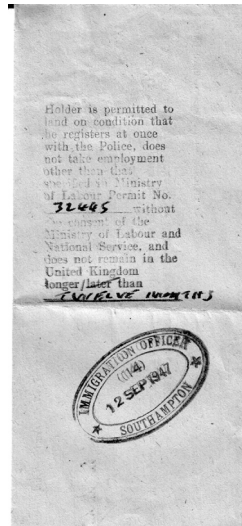 Holder is permitted to
land on condition that
he registers at once
with the Police, does
not take employment
other than that
specified in Ministry
of Labour Permit No.
32445 without
the consent of the
Ministry of Labour and
National Service, and
does not remain in the
United Kingdom
longer/later than
TWELVE MONTHS
IMMIGRATION OFFICER
(014)
12 SEP 1947
* SOUTHAMPTON *